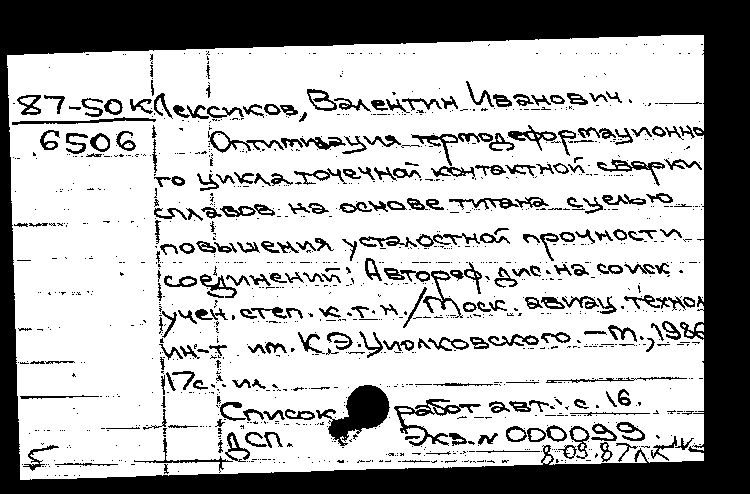 87-50К Лексиков, Валентин Иванович.
6506 Оптимизация термодеформационно
го цикла точечной контактной сварки
сплавов на основе титана с целью
повышения усталостной прочности
соединений: Автореф. дис. на соиск.
учен. степ. к.т.н. / Моск. авиац. технол
ин-т им. К.Э.Циолковского. – М., 1986
17с. ил.
Список работ авт.: с. 16.
ДСП. Экз. № 000099.
8.09.87